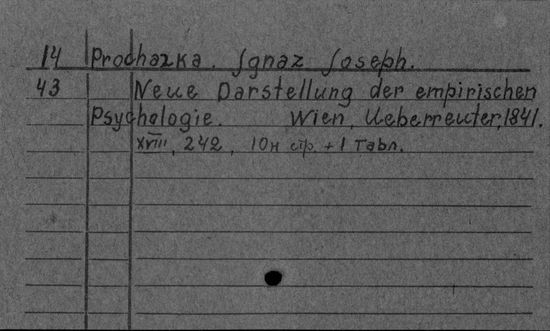 14 Prochazka. Ignaz Joseph.
43 Neue Darstellung der empirischen
Psychologie. Wien, Ueberreuter, 1841.
XVIII, 242, 10н стр. + 1 Табл.